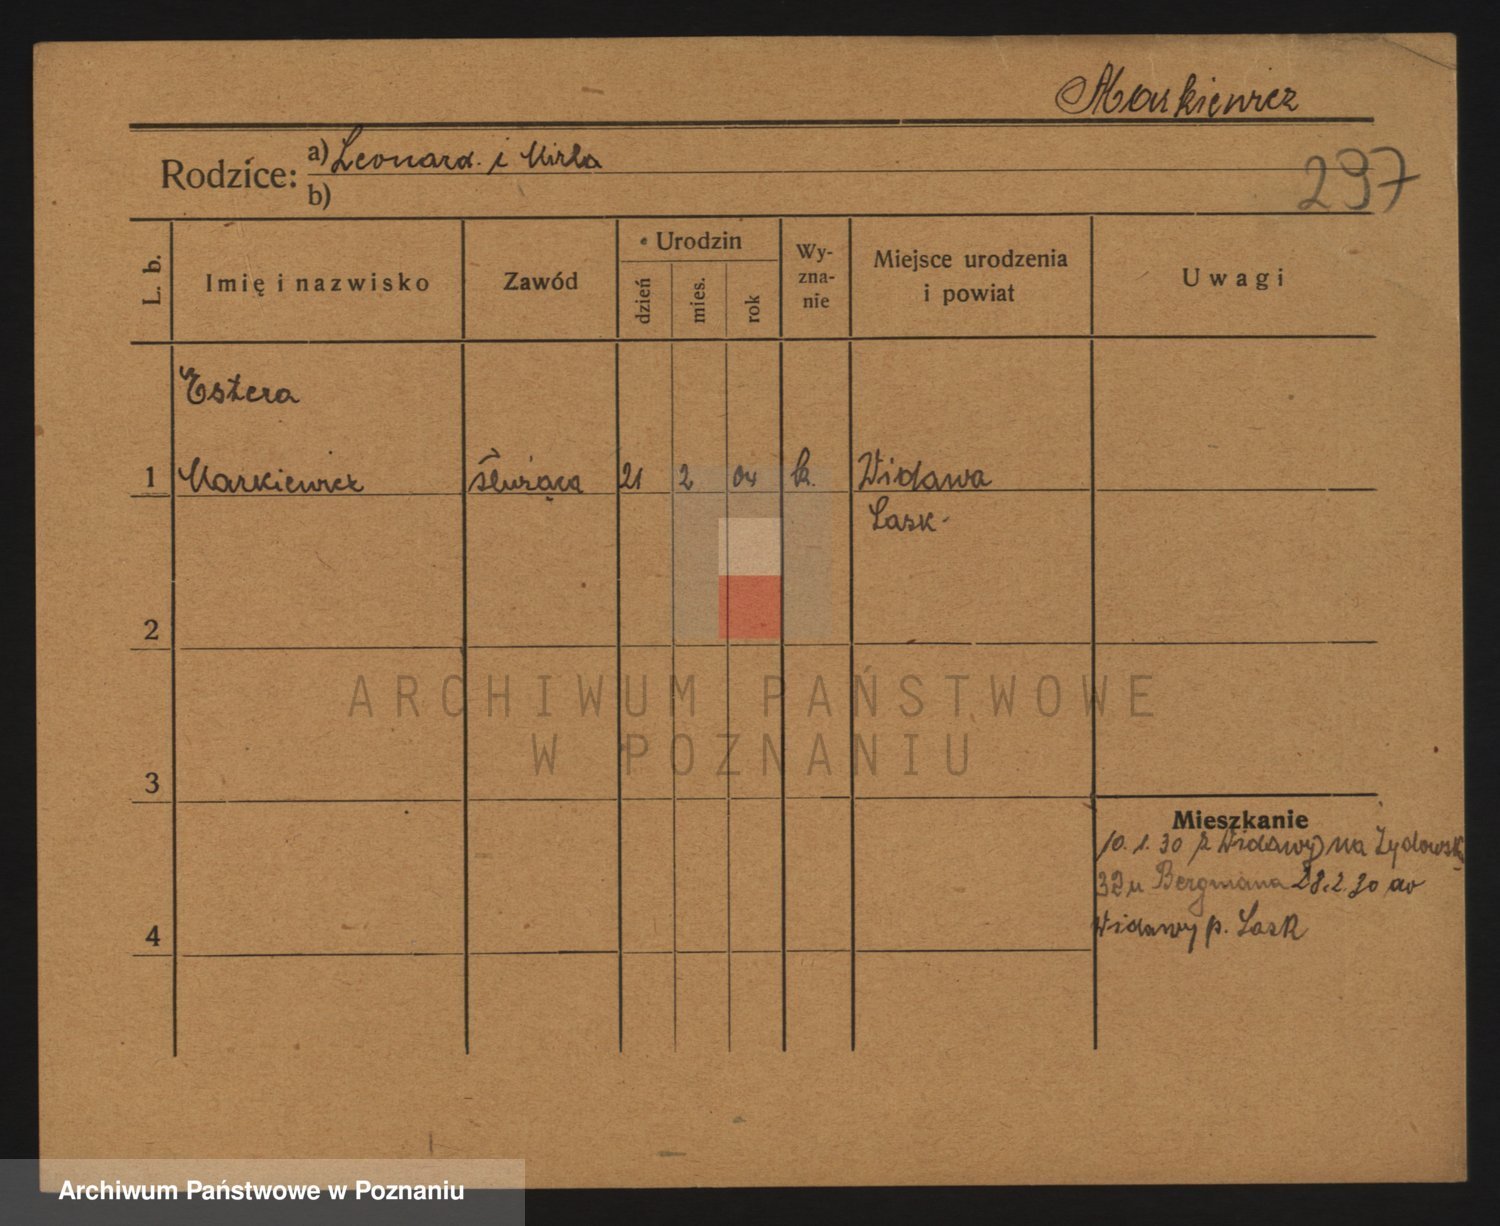 Markiewicz
Rodzice: a) Leonard. i Mirla
b)
297
L. b.
Imię i nazwisko
Zawód
Urodzin
dzień
mies.
rok
Wy-
zna-
nie
Miejsce urodzenia
i powiat
Uwagi
Estera
1 Markiewicz służąca 21 2 04 k. Widawa
Łask.
2
3
4
Mieszkanie
10.1.30 z Widawy na Żydowsk
32 u Bergmana 28.2.30 do
Widawy p. Łask
ARCHIWUM PAŃSTWOWE
W POZNANIU
Archiwum Państwowe w Poznaniu